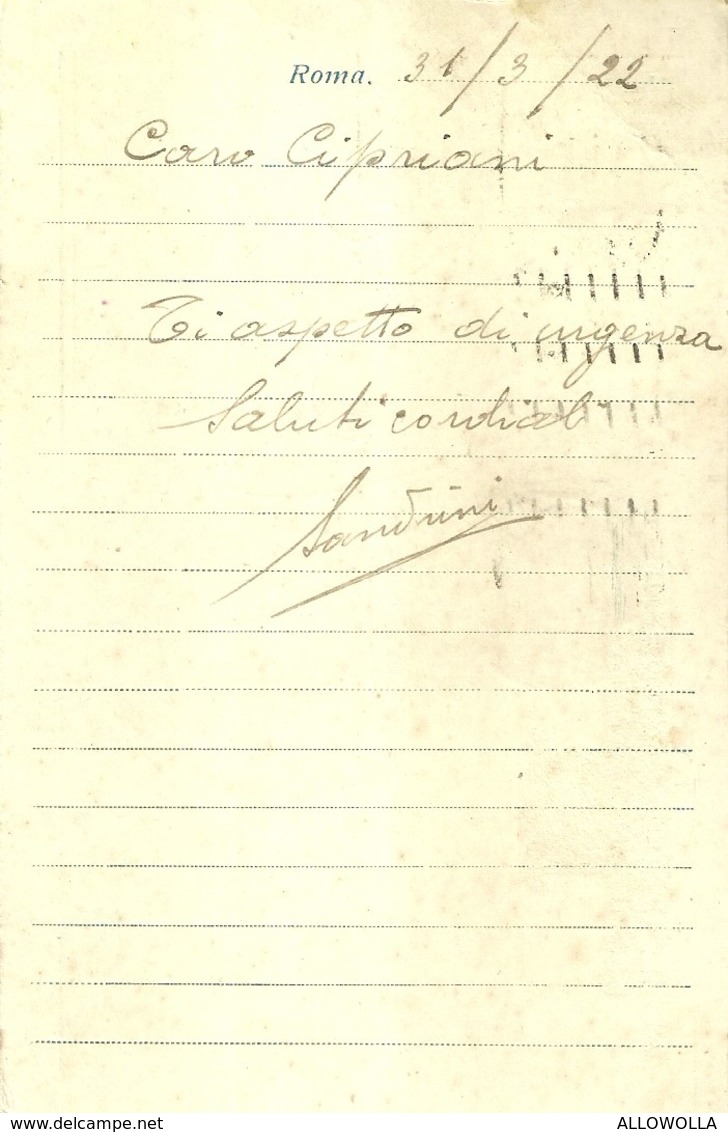 Roma. 31/3/22
Caro Cipriani
Ti aspetto di urgenza
Saluti cordial
Sandrini
www.delcampe.net
ALLOWOLLA